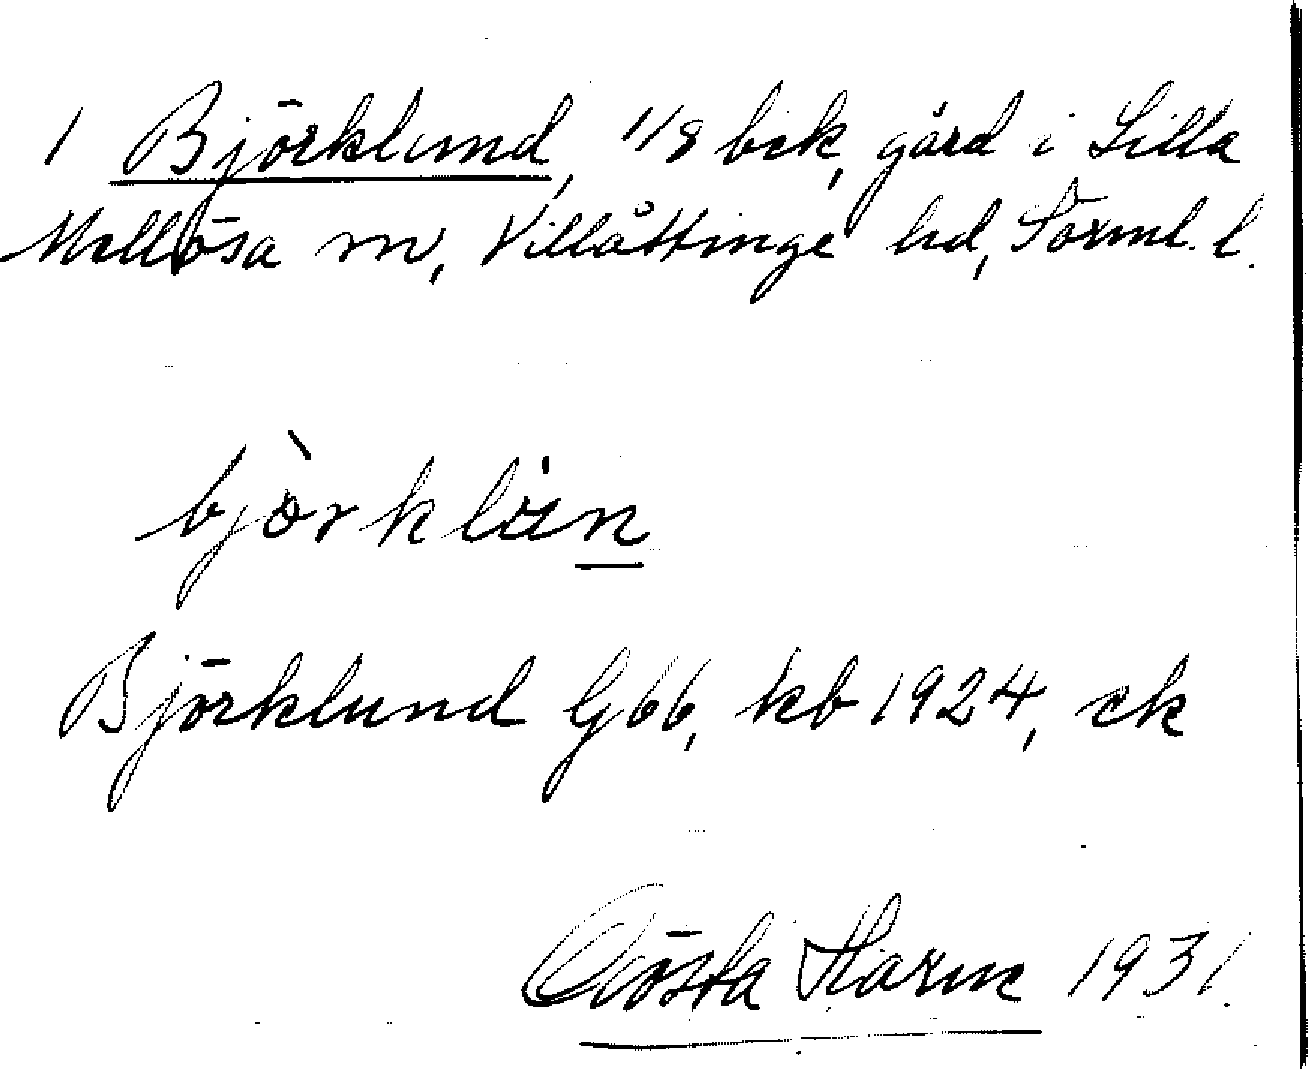 1 Björklund, 1/8 bek, gård i Lilla
Mellösa sn, Villåttinge hd, Sörml. l.
björklun
Björklund G66, kb 1924, ek
Gösta 1931.